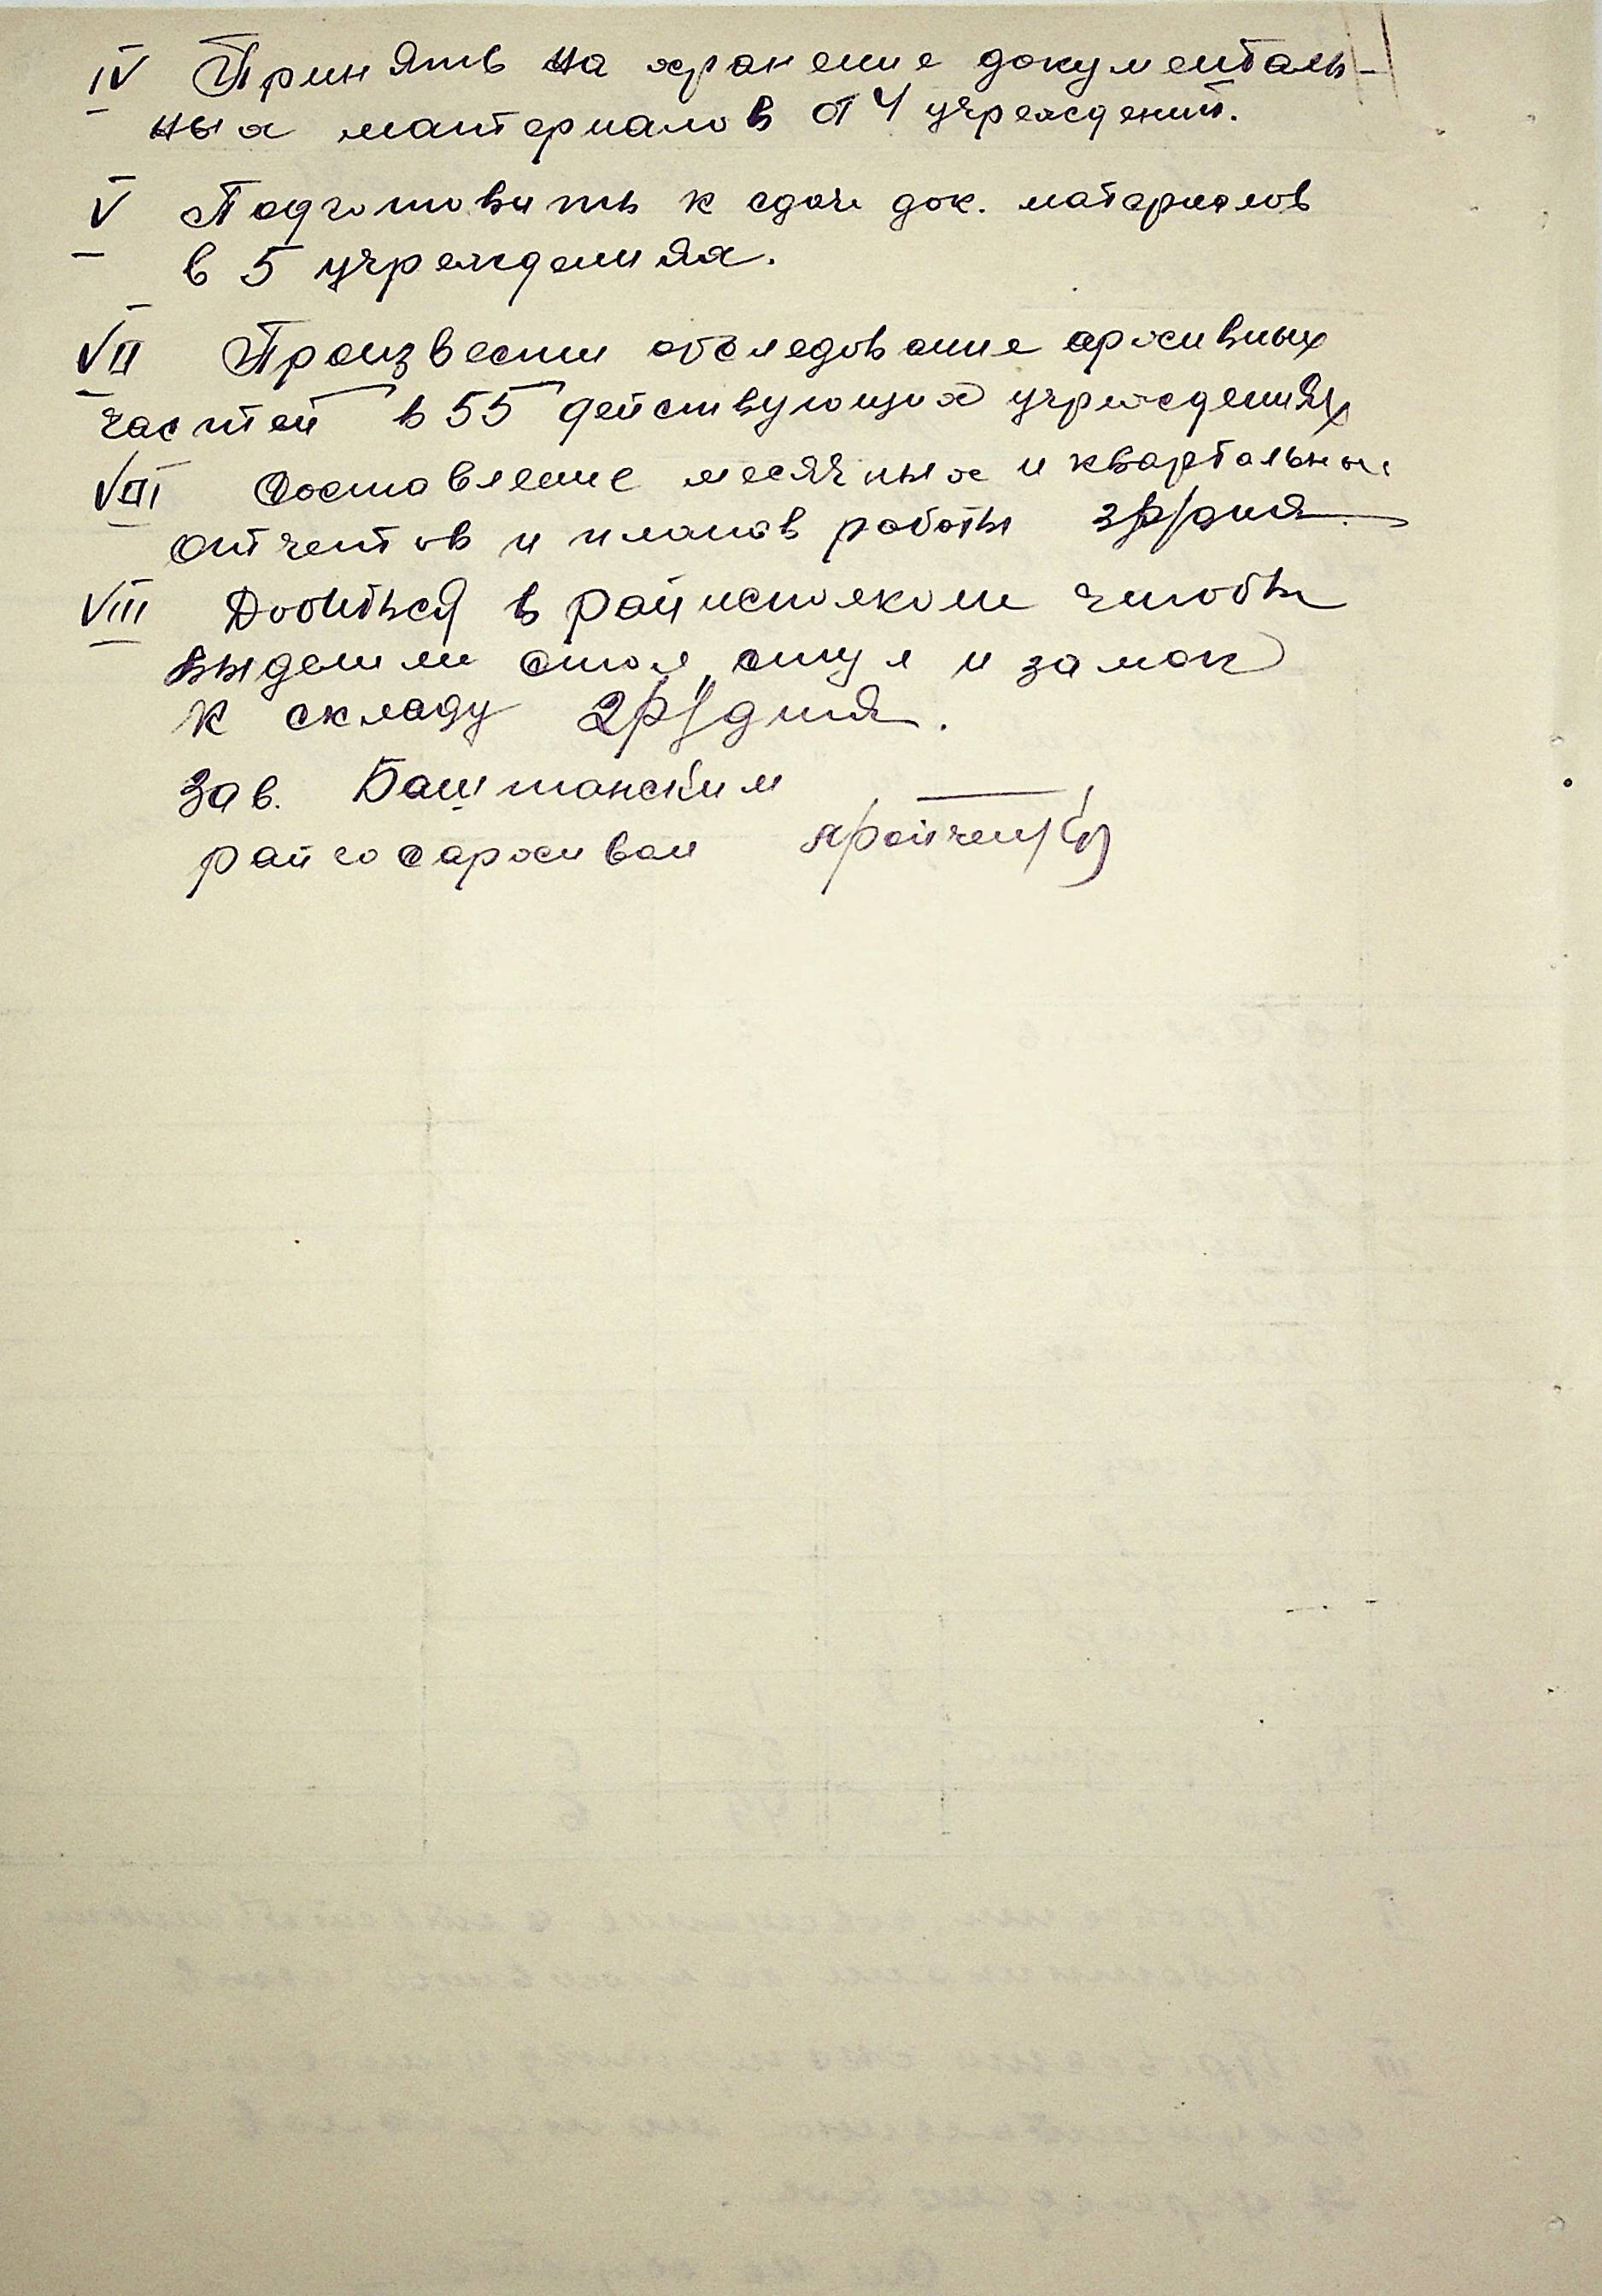 IV Принять на хранение документаль-
ных мантериалов от 4 учреждений.
V Подготовить к сдаче док. материалов
в 5 учреждениях.
VII Произвести обследование архивных
частей в 55 действующих учреждениях
VIII Составление месячных и квартальных
отчетов и планов работы 3 р/дня
VIII Добиться в райисполкоме чтобы
выделили стол, стул и замок
к складу 2 р/дня.
Зав. Баштанским
райгосархивом